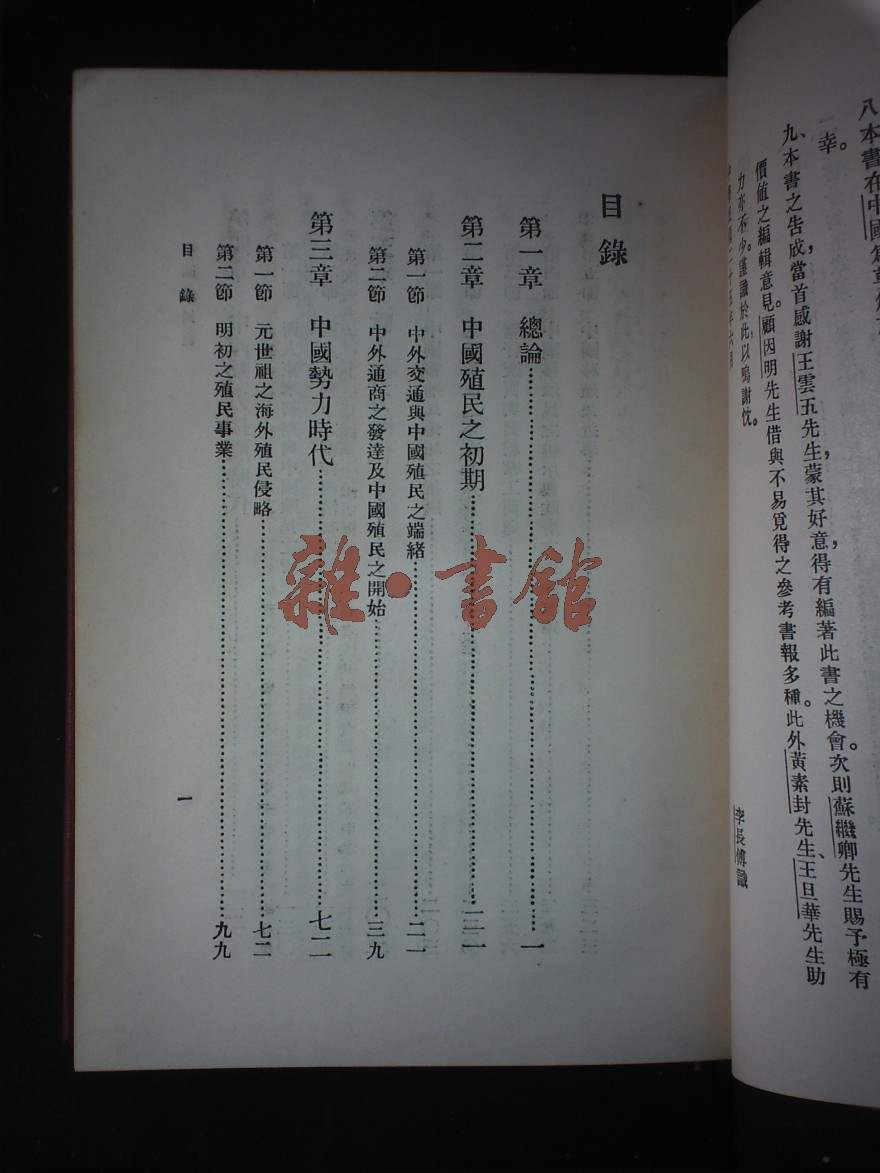 八本書在中國
幸。
九、本書之告成，當首感謝王雲五先生，蒙其好意，得有編著此書之機會。次則蘇繼卿先生賜予極有
價值之編輯意見。顧因明先生借與不易覓得之參考書報多種。此外黃素封先生、王旦華先生助
力亦不少。謹識於此，以鳴謝忱。
李長傅識
目錄
第一章 總論 一
第二章 中國殖民之初期
第一節 中外交通與中國殖民之端緒 二一
第二節 中外通商之發達及中國殖民之開始 三九
第三章 中國勢力時代 七二
第一節 元世祖之海外殖民侵略 七二
第二節 明初之殖民事業 九九
目錄
一
雜·書館